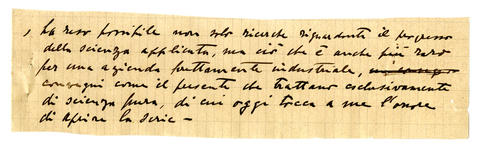 , ha reso possibile non solo ricerche riguardanti il progresso
della scienza applicata, ma ciò che è anche più raro
per una azienda prettamente industriale,
convegni come il presente che trattano esclusivamente
di scienza pura, di cui oggi tocca a me l'onore
di aprire la serie –